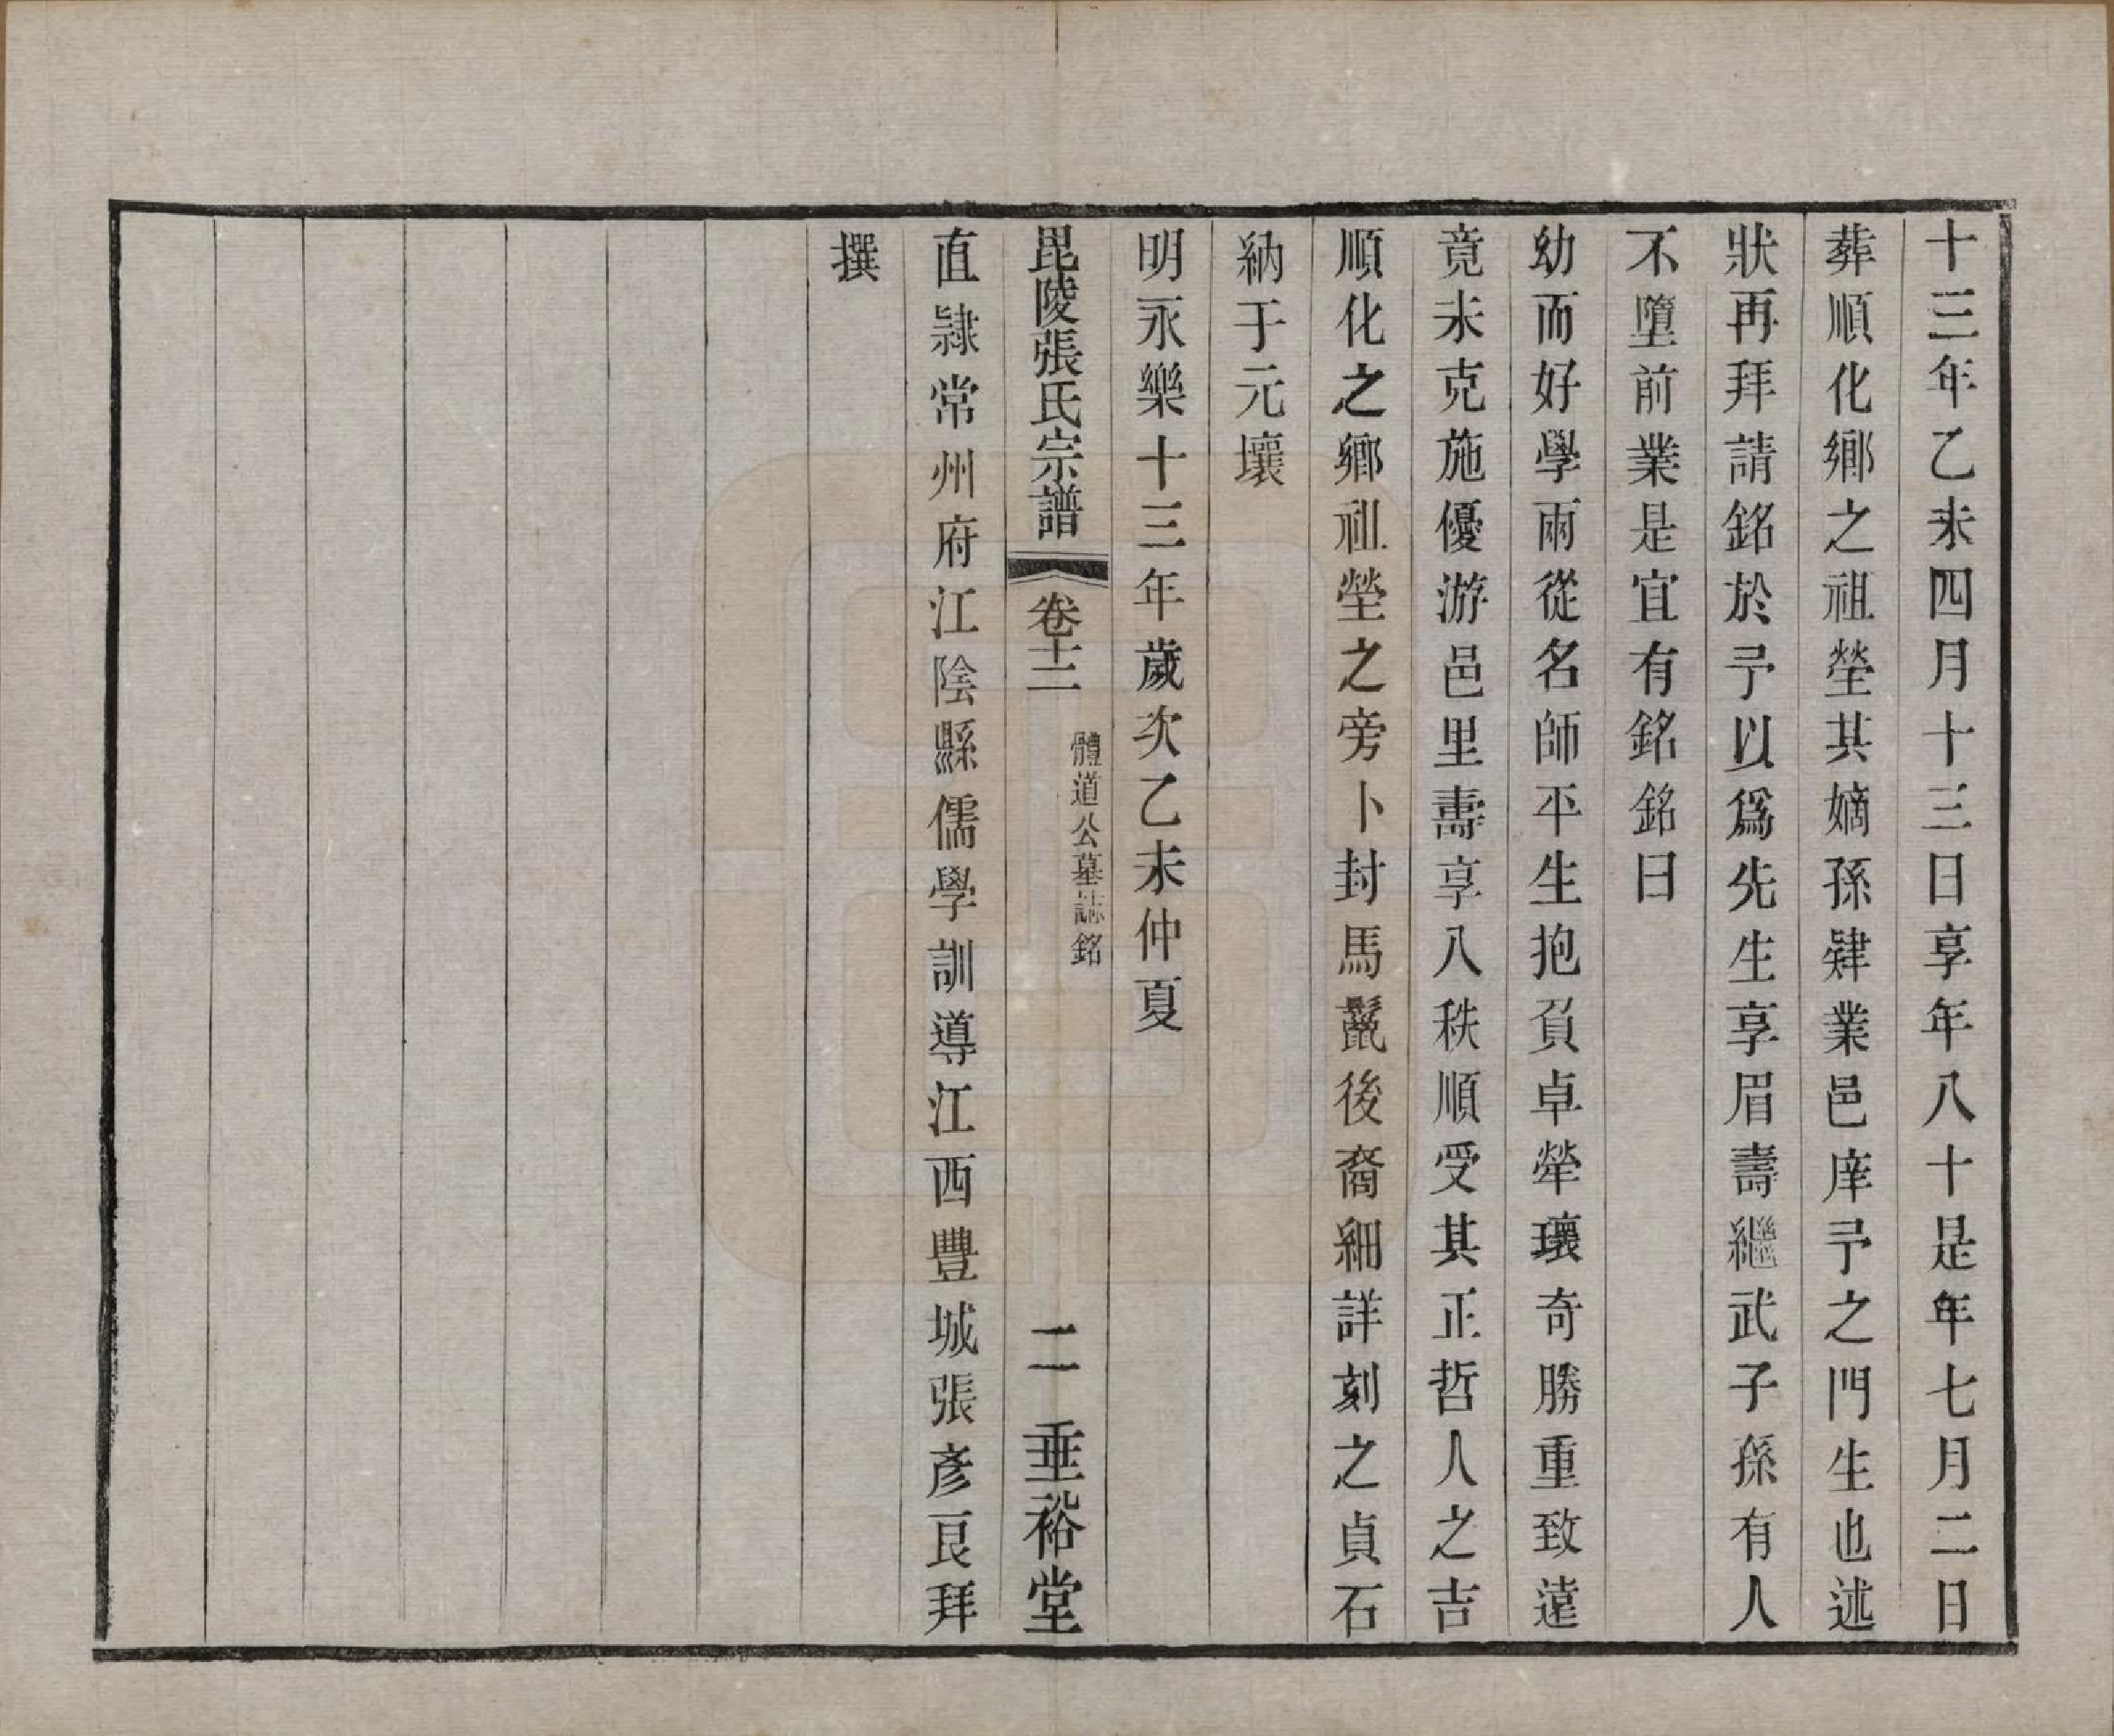 十三年乙未四月十三日享年八十是年七月二日
葬順化鄉之祖塋其嫡孫肄業邑庠予之門生也述
狀再拜請銘於予以爲先生享眉壽繼武子孫有人
不墮前業是宜有銘銘曰
幼而好學兩從名師平生抱負卓犖瓌奇勝重致遠
竟未克施優游邑里壽享八秩順受其正哲人之吉
順化之鄉祖塋之旁卜封馬鬣後裔細詳刻之貞石
納于元壤
明永樂十三年歲次乙未仲夏
毘陵張氏宗譜 卷十二 體道公墓誌銘 二 垂裕堂
直隸常州府江陰縣儒學訓導江西豐城張彥良拜
撰